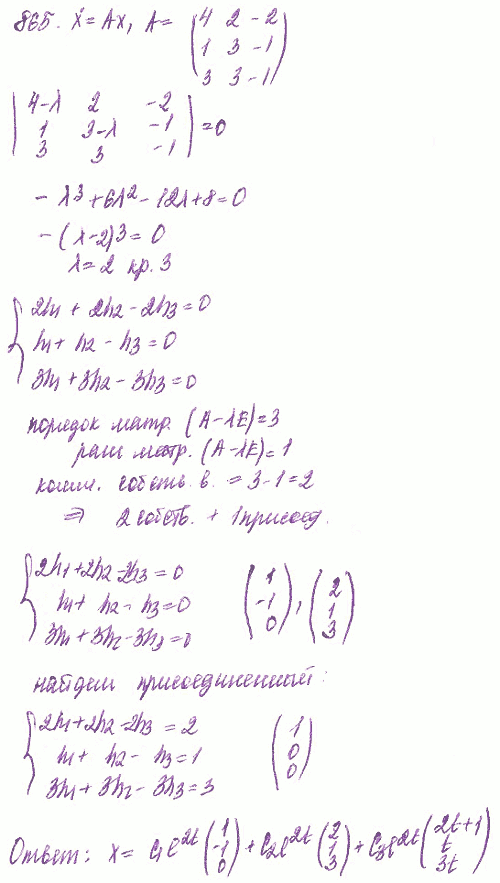 865. ẋ = Ax, A = (4 2 -2
1 3 -1
3 3 -1)
|4-λ 2 -2
1 3-λ -1
3 3 -1| = 0
-λ³ + 6λ² - 12λ + 8 = 0
-(λ-2)³ = 0
λ = 2 кр. 3
{2h₁ + 2h₂ - 2h₃ = 0
h₁ + h₂ - h₃ = 0
3h₁ + 3h₂ - 3h₃ = 0
порядок матр. (A-λE) = 3
ранг матр. (A-λE) = 1
колич. собств. в. = 3-1 = 2
⇒ 2 собств. + 1 присоед.
{2h₁ + 2h₂ - 2h₃ = 0 (1) (2)
h₁ + h₂ - h₃ = 0 (-1), (1)
3h₁ + 3h₂ - 3h₃ = 0 (0) (3)
найдем присоединенный:
{2h₁ + 2h₂ - 2h₃ = 2 (1)
h₁ + h₂ - h₃ = 1 (0)
3h₁ + 3h₂ - 3h₃ = 3 (0)
Ответ: x = c₁e²ᵗ (1 -1 0) + c₂e²ᵗ (2 1 3) + c₃e²ᵗ (2t+1 t 3t)